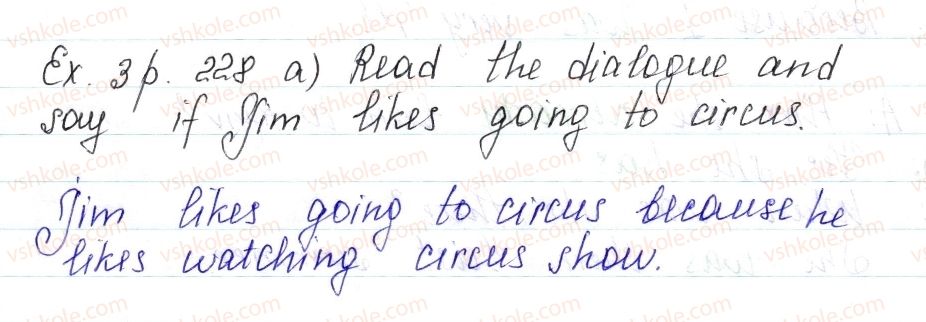 Ex. 3 p. 228 a) Read the dialogue and
say if Jim likes going to circus.
Jim likes going to circus because he
likes watching circus show.